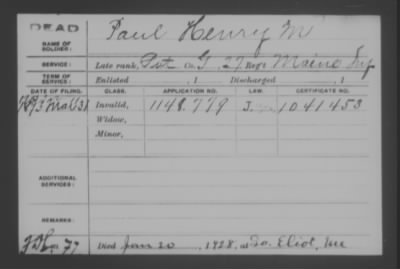 DEAD
Paul Henry M
NAME OF SOLDIER:
SERVICE: Late rank, Pvt Co. G, 27 Reg't Maine Inf
TERM OF SERVICE: Enlisted , 1 Discharged , 1
DATE OF FILING. CLASS. APPLICATION NO. LAW. CERTIFICATE NO.
Mar 31 Invalid, 1148.779 1041453
Widow,
Minor,
ADDITIONAL SERVICES:
REMARKS:
77 Died Jan 20, 1928, at So. Eliot, Me